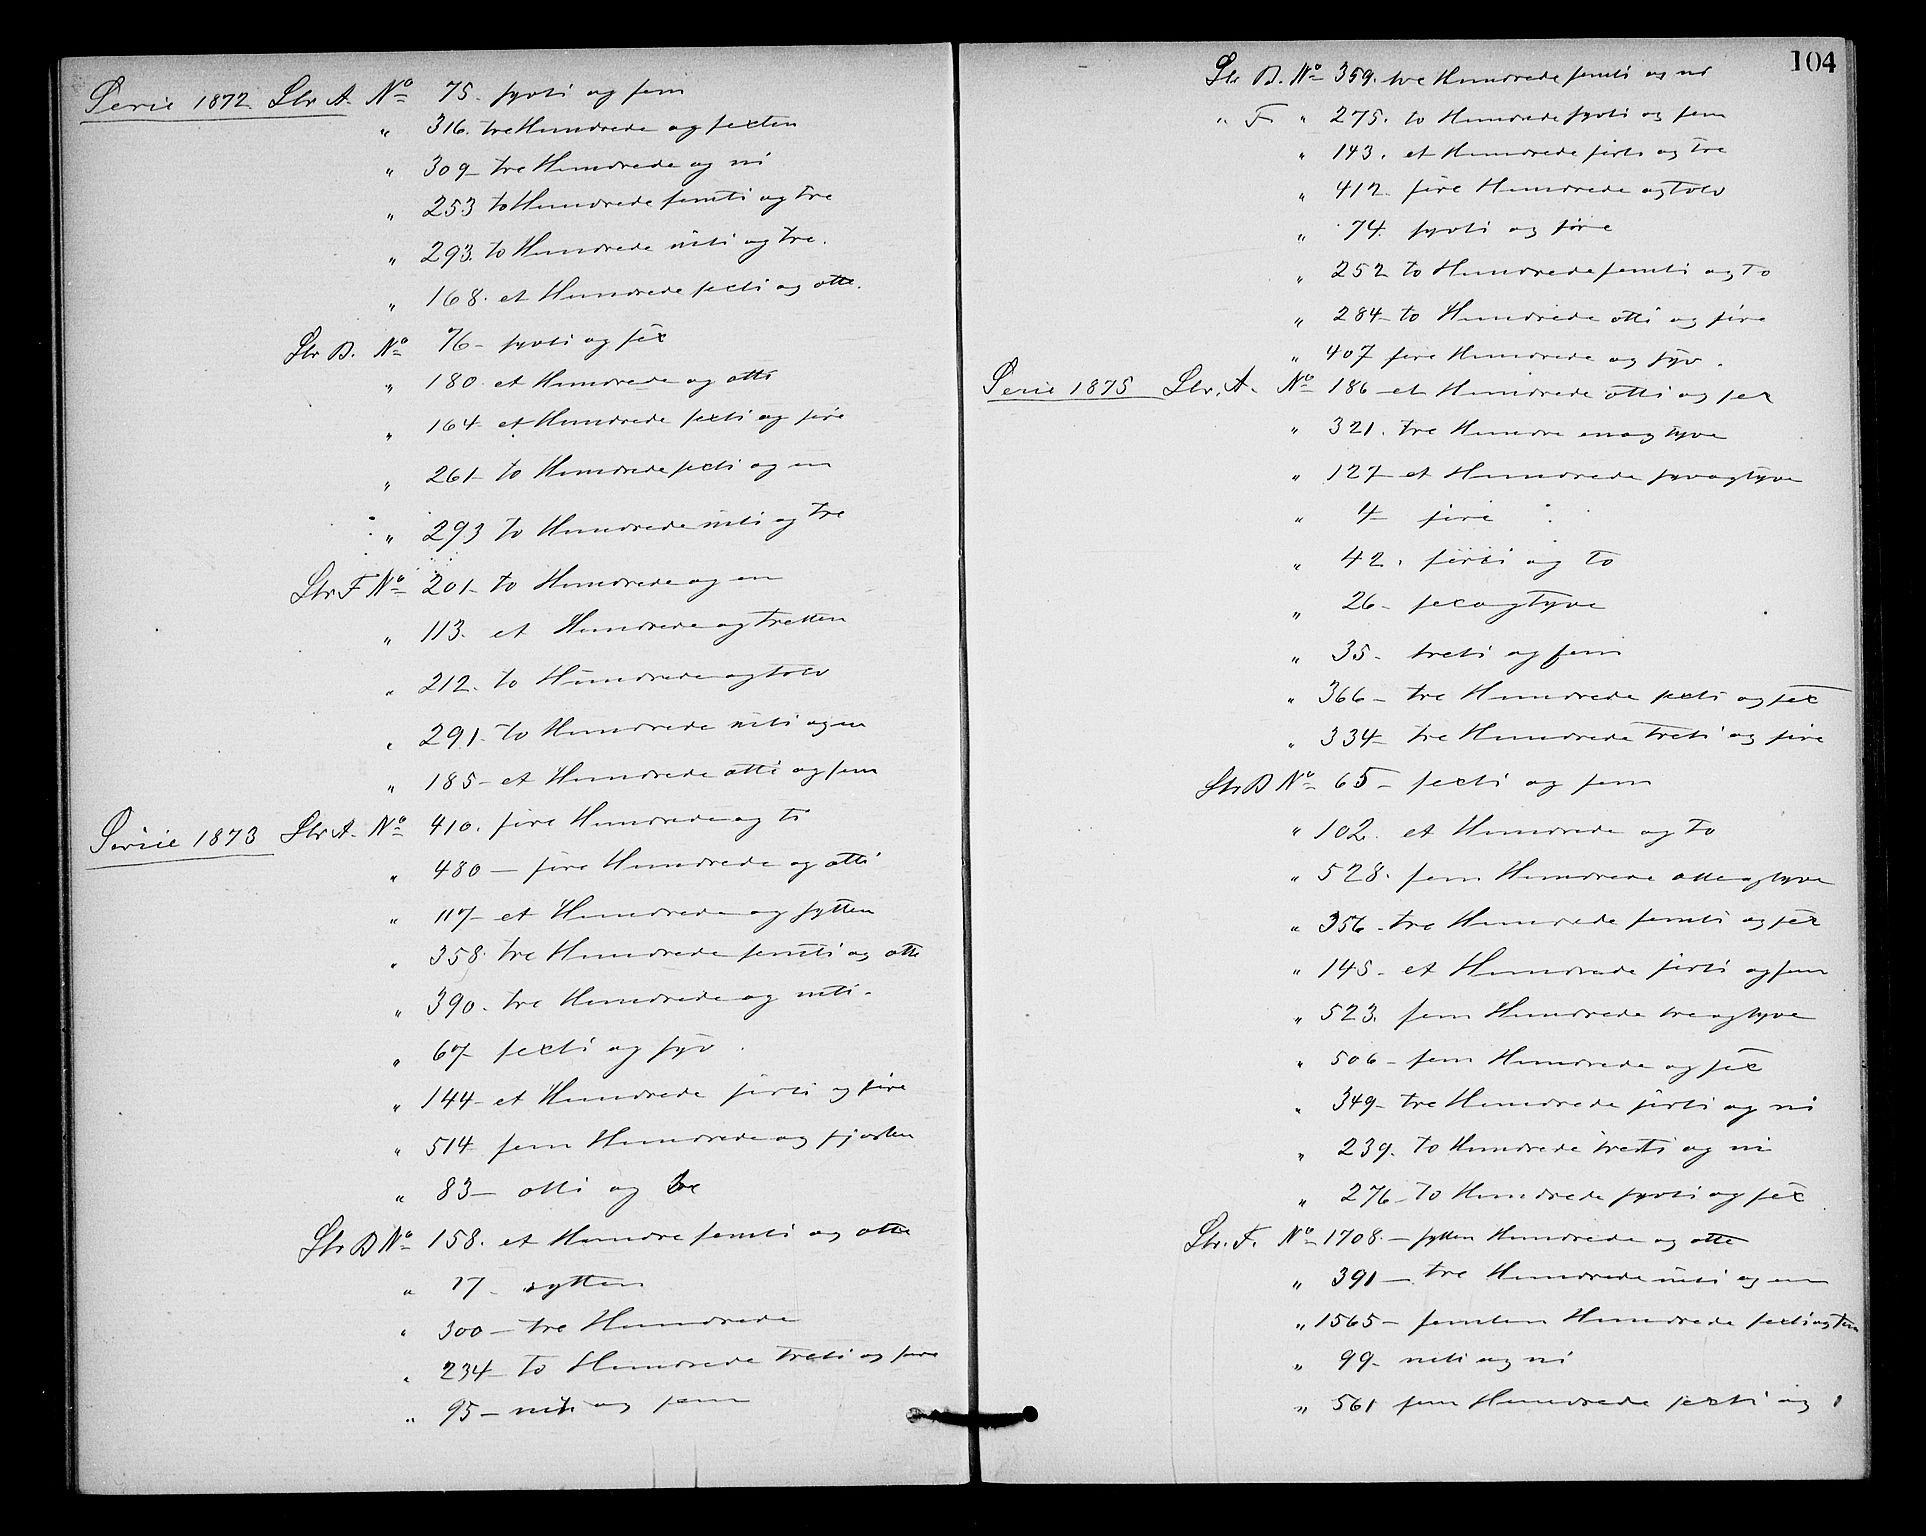 Serie 1872 Ltr A. No 75. syvti og fem
" 316. tre Hundrede og sexten
" 309 – tre Hundrede og ni
" 253 to Hundrede femti og tre
" 293. to Hundrede niti og tre.
" 168. et Hundrede sexti og otte.
Ltr B. No 76 – syvti og sex
" 180. et Hundrede og otti
" 164 – et Hundrede sexti og fire
" 261 – to Hundrede sexti og en
" 293 to Hundrede niti og tre
Ltr F No 201 – to Hundrede og en
" 113. et Hundrede og tretten
" 212. to Hundrede og tolv
" 291. to Hundrede niti og en
" 185 – et Hundrede otti og fem
Serie 1873 Ltr A. No 410. fire Hundrede og ti
" 480 – fire Hundrede og otti
" 117 – et Hundrede og sytten
" 358. tre Hundrede femti og otte
" 390. tre Hundrede og niti.
" 67 sexti og syv.
" 144 – et Hundrede firti og fire
" 514 fem Hundrede og fjorten
" 83 – otti og tre
Ltr B No 158. et Hundre femti og otte
" 17 – sytten
" 300 – tre Hundrede
" 234 – to Hundrede treti og fire
" 95 – niti og fem
104
Ltr B. No 359. tre Hundrede femti og ni
" F " 275. to Hundrede syvti og fem
" 143. et Hundrede firti og tre
" 412. fire Hundrede og tolv
" 74. syvti og fire
" 252 to Hundrede femti og to
" 284 – to Hundrede otti og fire
" 407 fire Hundrede og syv.
Serie 1875 Ltr. A. No 186 – et Hundrede otti og sex
" 321. tre Hundre en og tyve
" 127 – et Hundrede syvogtyve
" 4 – fire
" 42. firti og to
" 26 – sexogtyve
" 35 – treti og fem
" 366 – tre Hundrede sexti og sex
" 334 – tre Hundrede treti og fire
Ltr B No 65 – sexti og fem
" 102. et Hundrede og to
" 528. fem Hundrede otteogtyve
" 356. tre Hundrede femti og sex
" 145 – et Hundrede firti og fem
" 523. fem Hundrede treogtyve
" 506 – fem Hundrede og sex
" 349 – tre Hundrede firti og ni
" 239. to Hundrede tretti og ni
" 276 – to Hundrede syvti og sex
Ltr. F. No 1708. – sytten Hundrede og otte
" 391 – tre Hundrede niti og en
" 1565 – femten Hundrede sexti og fem
" 99 – niti og ni
" 561 fem Hundrede sexti og 1